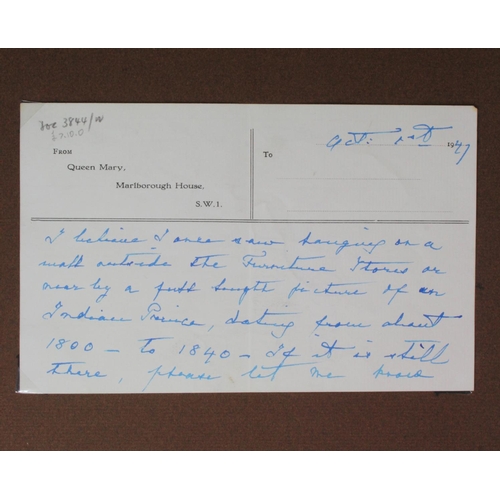 3844/W
£7.10.0
From
Queen Mary,
Marlborough House,
S.W.1.
To
Oct: 1947
I believe I once saw hanging on a
wall outside the Furniture Stores or
near by a full length picture of an
Indian Prince, dating from about
1800 – to 1840 – If it is still
there, please let me know